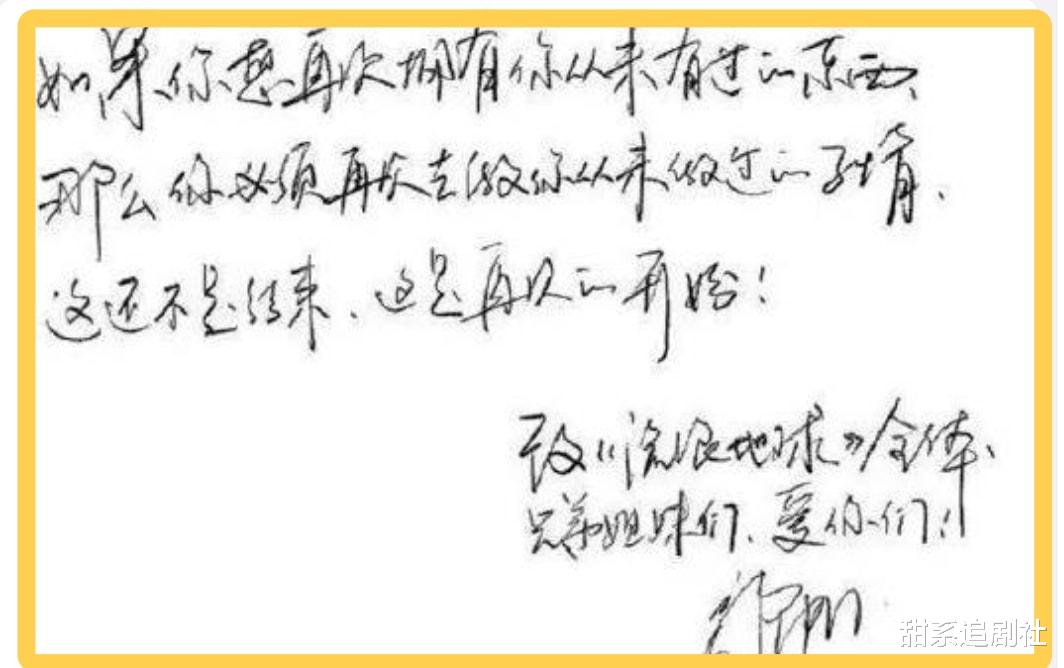 如果你想再次拥有你从未有过的东西、
那么你必须再次去做你从未做过的事情、
这还不是结束、这是再次的开始！
致《流浪地球》全体、
兄弟姐妹们、爱你们！
甜系追剧社